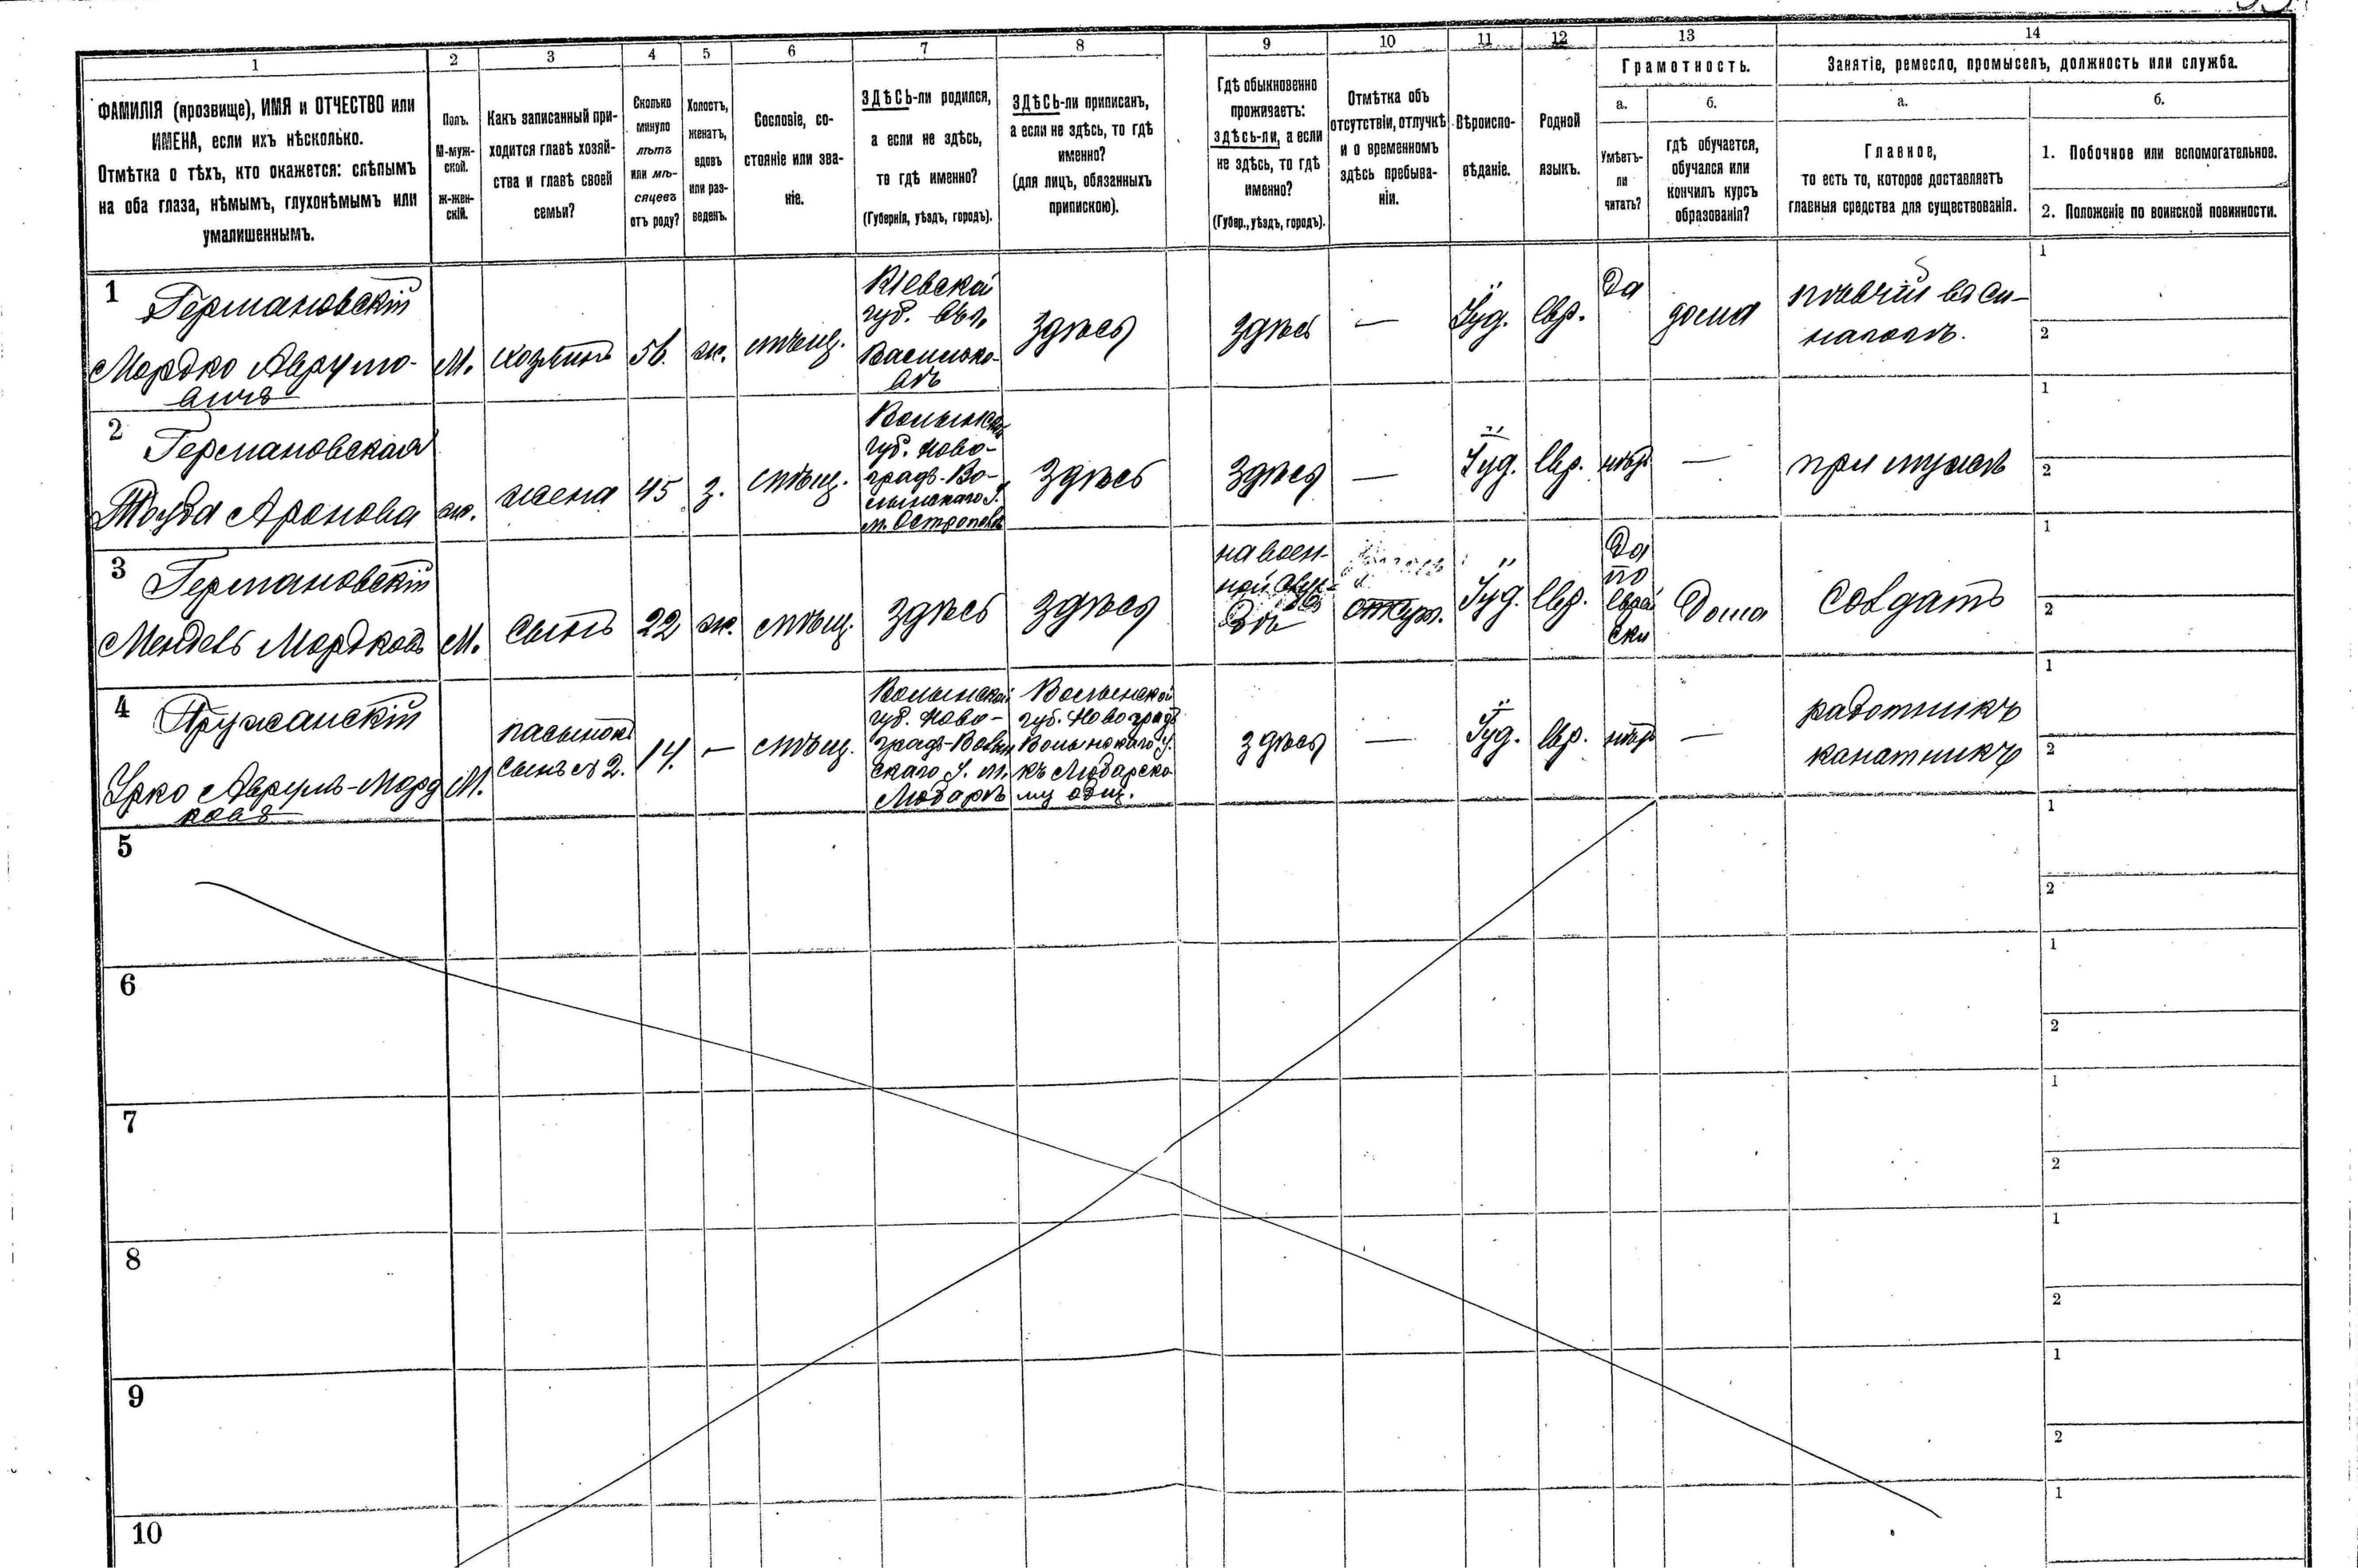 1
2
3
4
5
6
7
8
9
10
11
12
13
14
ФАМИЛІЯ (прозвище), ИМЯ и ОТЧЕСТВО или
ИМЕНА, если ихъ нѣсколько.
Отмѣтка о тѣхъ, кто окажется: слѣпымъ
на оба глаза, нѣмымъ, глухонѣмымъ или
умалишеннымъ.
Полъ.
М-муж-
ской.
Ж-жен-
скій.
Какъ записанный при-
ходится главѣ хозяй-
ства и главѣ своей
семьи?
Сколько
минуло
лѣтъ
или мѣ-
сяцевъ
отъ роду?
Холостъ,
женатъ,
вдовъ
или раз-
веденъ.
Сословіе, со-
стояніе или зва-
ніе.
ЗДѢСЬ-ли родился,
а если не здѣсь,
то гдѣ именно?
(Губернія, уѣздъ, городъ).
ЗДѢСЬ-ли приписанъ,
а если не здѣсь, то гдѣ
именно?
(для лицъ, обязанныхъ
припискою).
Гдѣ обыкновенно
проживаетъ:
здѣсь-ли, а если
не здѣсь, то гдѣ
именно?
(Губер., уѣздъ, городъ).
Отмѣтка объ
отсутствіи, отлучкѣ
и о временномъ
здѣсь пребыва-
ніи.
Вѣроиспо-
вѣданіе.
Родной
языкъ.
Грамотность.
а.
Умѣетъ-
ли
читать?
б.
гдѣ обучается,
обучался или
кончилъ курсъ
образованія?
Занятіе, ремесло, промыселъ, должность или служба.
а.
Главное,
то есть то, которое доставляетъ
главныя средства для существованія.
б.
1. Побочное или вспомогательное.
2. Положеніе по воинской повинности.
1
Германовскій
Мордко Аврумо-
вичъ
М.
хозяинъ
56.
ж.
мѣщ.
Кіевской
губ. въ г.
Василько-
вѣ
здѣсь
здѣсь
—
Іуд.
Евр.
Да
дома
пѣвчій въ си-
нагогѣ.
1
2
2
Германовская
Тауба Аронова
ж.
жена
45
з.
мѣщ.
Волынской
губ. Ново-
градъ-Во-
лынскаго у.
м. Острополь
здѣсь
здѣсь
—
Іуд.
Евр.
нѣтъ
—
при мужѣ
1
2
3
Германовскій
Мендель Мордковъ
М.
сынъ
22
ж.
мѣщ.
здѣсь
здѣсь
на воен-
ной служ-
бѣ
Іуд.
Евр.
Да
по
еврей
ски
Дома
Солдатъ
1
2
4
Пружанскій
Урко Аврумъ-Морд
ковъ
М.
пасынокъ
сынъ № 2.
14.
—
мѣщ.
Волынской
губ. Ново-
градъ-Волын
скаго у. м.
Любарѣ
Волынской
губ. Новоградъ
Волынскаго у.
къ Любарско
му общ.
здѣсь
—
Іуд.
Евр.
нѣтъ
—
работникъ
канатникъ
1
2
5
1
2
6
1
2
7
1
2
8
1
2
9
1
2
10
1